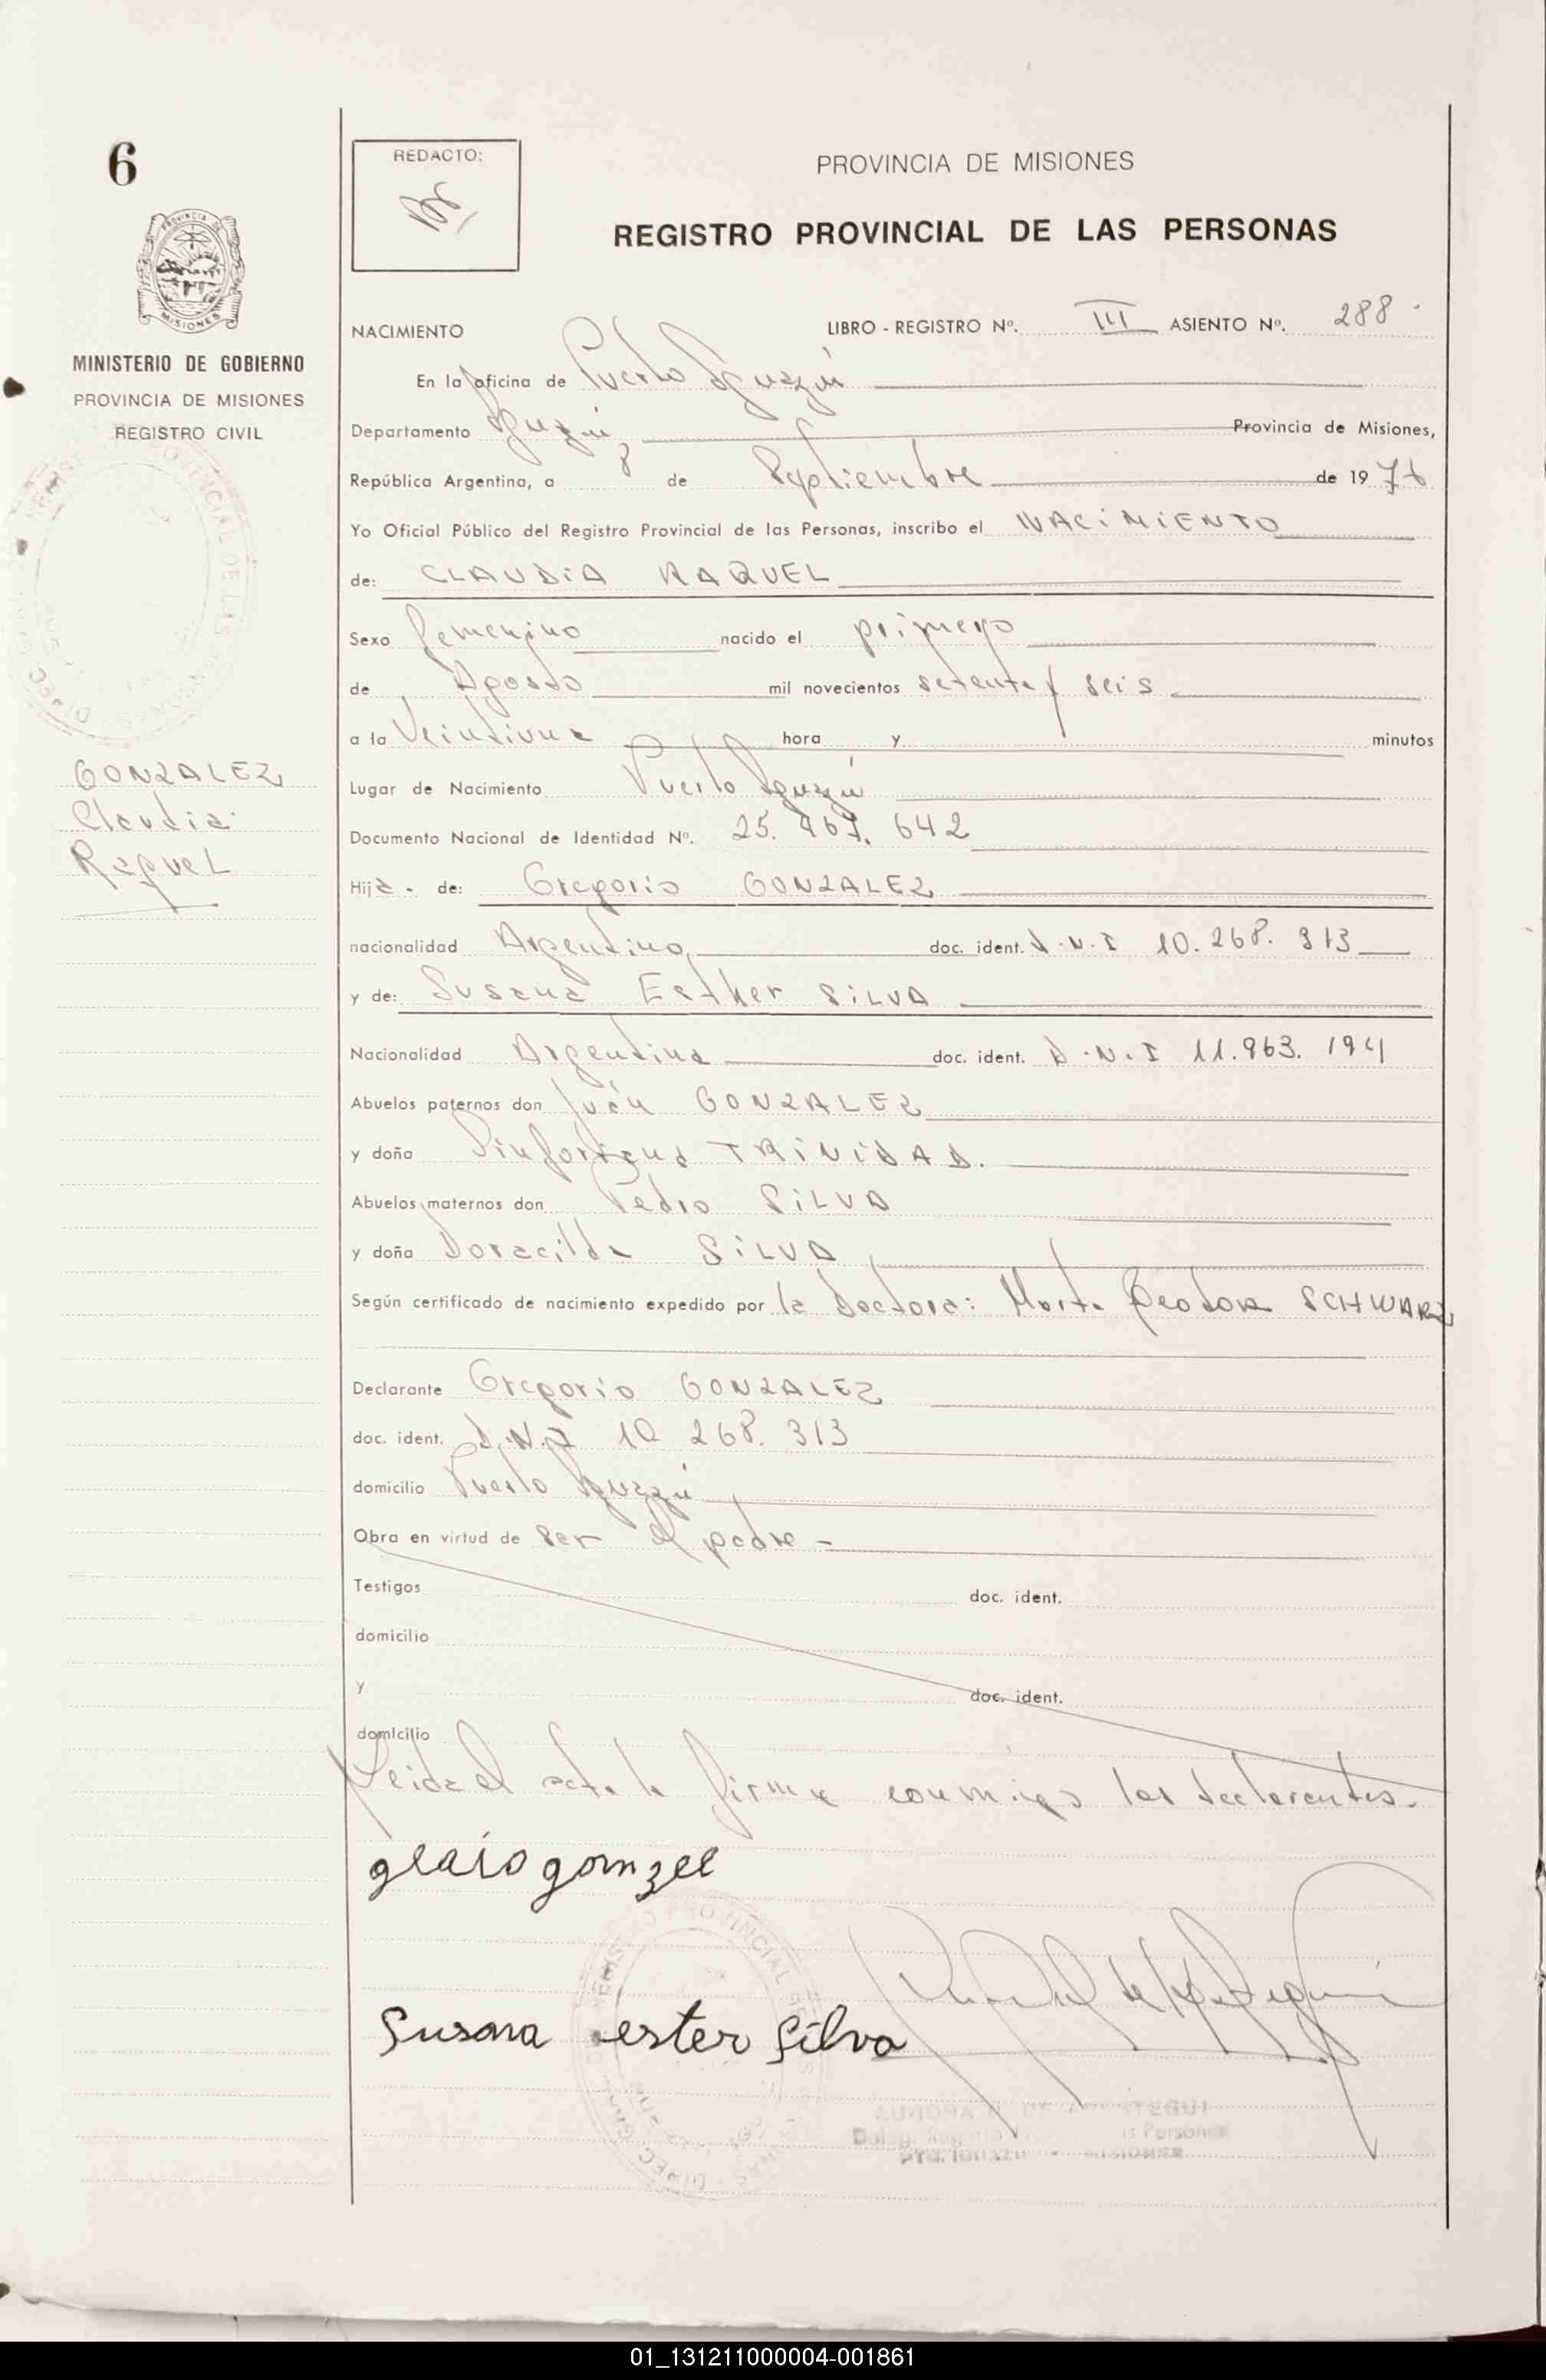 6
REDACTO:
PROVINCIA DE MISIONES
REGISTRO PROVINCIAL DE LAS PERSONAS
PROVINCIA DE
MISIONES
MINISTERIO DE GOBIERNO
PROVINCIA DE MISIONES
REGISTRO CIVIL
GONZALEZ
Claudia
Raquel
NACIMIENTO LIBRO - REGISTRO Nº. III ASIENTO Nº. 288
En la oficina de Puerto Iguazú
Departamento Iguazú Provincia de Misiones,
República Argentina, a 8 de Septiembre de 1976
Yo Oficial Público del Registro Provincial de las Personas, inscribo el NACIMIENTO
de: CLAUDIA RAQUEL
Sexo femenino nacido el primero
de Agosto mil novecientos setenta y seis
a la Veintiuna hora y minutos
Lugar de Nacimiento Puerto Iguazú
Documento Nacional de Identidad Nº. 25. 642
Hija de: Gregorio GONZALEZ
nacionalidad Argentina doc. ident. D.N.I 10.268.313
y de: Susana Esther SILVA
Nacionalidad Argentina doc. ident. D.N.I 11.963.194
Abuelos paternos don Juan GONZALEZ
y doña TRINIDAD.
Abuelos maternos don Pedro SILVA
y doña Doracilda SILVA
Según certificado de nacimiento expedido por la Doctora: SCHWARZ
Declarante Gregorio GONZALEZ
doc. ident. D.N.I 10 268. 313
domicilio Puerto Iguazú
Obra en virtud de ser el padre -
Testigos doc. ident.
domicilio
y doc. ident.
domicilio
Leida el acta la firma conmigo los declarantes.
Susana ester Silva
AURORA
PTO. IGUAZU - MISIONES
01_131211000004-001861